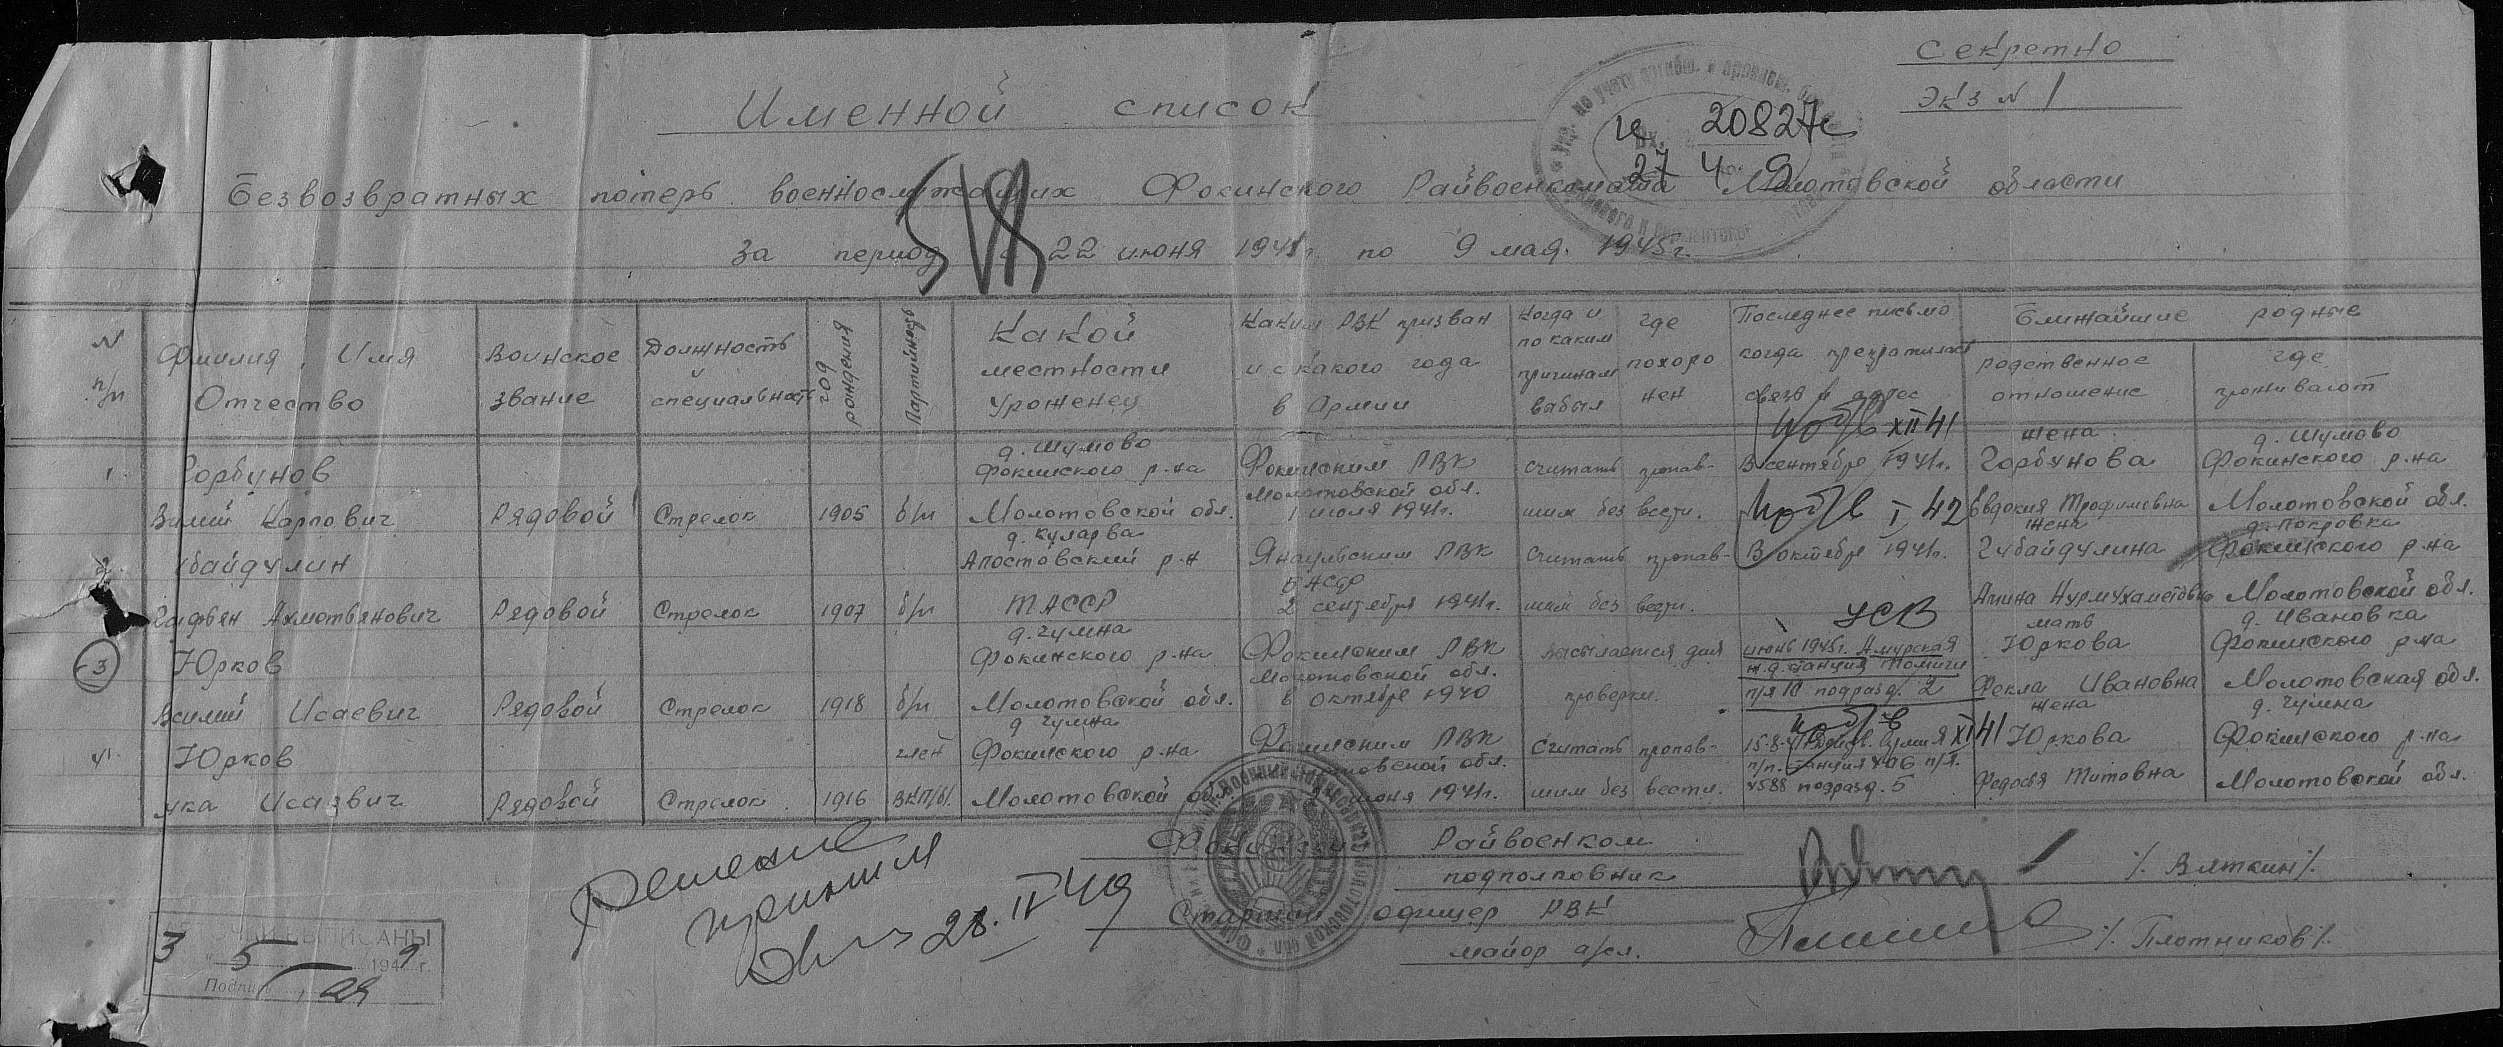 Секретно
Экз N 1
20827с
27 4 9
Именной список
Безвозвратных потерь военнослужащих Фокинского Райвоенкомата Молотовской области
за период с 22 июня 1941г. по 9 мая 1945г.
N п/п
Фмилия, Имя Отчество
Воинское звание
Должность специальность
год рождения
Партийность
Какой местности уроженец
Каким РВК призван и с какого года в Армии
Когда и по каким причинам выбыл
где похоро нен
Последнее письмо когда прекратилась связь и адрес
Ближайшие родные
родственное отношение
где проживают
1. Горбунов
Рядовой
Стрелок
1905
б/п
д. Шумово
Фокинского р-на
Молотовской обл.
Фокинским РВК
Молотовской обл.
1 июля 1941г.
считать пропав-
шим без вести.
XII 41
В сентябре 1941г.
жена
Горбунова
Евдокия Трофимовна
д. Шумово
Фокинского р-на
Молотовской обл.
2. убайдулин
Ахметьянович
Рядовой
Стрелок
1907
б/п
Апостовский р-н
ТАССР
Янаульским РВК
2 сентября 1941г.
считать пропав-
шим без вести.
I 42
В октябре 1941г.
жена
Губайдулина
Амина Нурмухаметовна
д. Покровка
Фокинского р-на
Молотовской обл.
3 Юрков
Исаевич
Рядовой
Стрелок
1918
б/п
Фокинского р-на
Молотовской обл.
Фокинским РВК
Молотовской обл.
в октябре 1940
высылается для
проверки.
УСВ
июнь 1945г. Амурская
ж.д. станция Томичи
п/я 10 подразд. 2
мать
Юркова
Фекла Ивановна
д. Ивановка
Фокинского р-на
Молотовская обл.
4. Юрков
ука Исаэвич
Рядовой
Стрелок
1916
член ВКП/б/.
Фокинского р-на
Молотовской обл.
Фокинским РВК
июня 1941г.
Считать пропав-
шим без вести.
XI 41
подразд. 5
жена
Юркова
Федосья Титовна
Фокинского р-на
Молотовской обл.
Райвоенком
подполковник
/. Вяткин/.
Старший офицер РВК
майор а/сл.
/. Плотников/.
Решение
принял
28. II 49
3 5 1949 г.